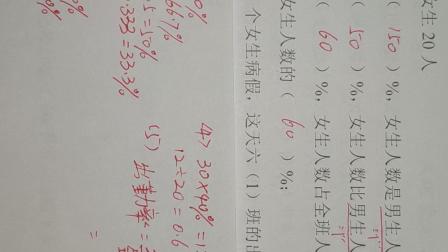 女生 20 人
( 150 )%, 女生人数是男生
( 50 )%, 女生人数比男生人
( 60 )%, 女生人数占全班人
女生人数的 ( 60 )%;
个女生病假, 这天六 (1) 班的出
(4) 30×40%=1
12÷20=0.6
(5) 出勤率=
=
0%
66.7%
5=50%
.333=33.3%
0%
%